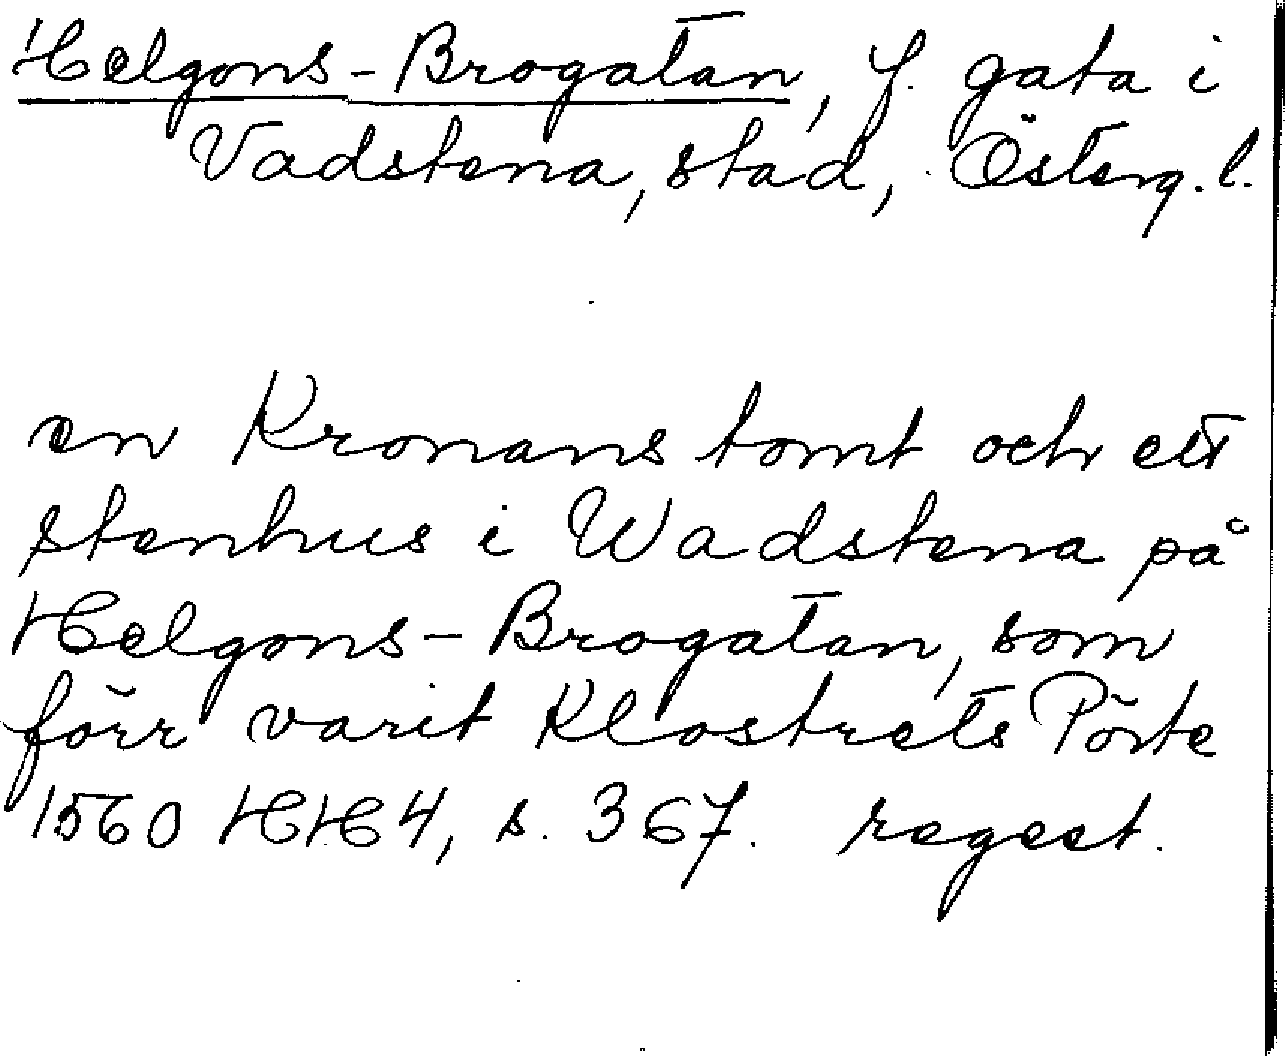 Helgons-Brogatan, f. gata i
Vadstena, stad, Österg. l.
en Kronans tomt och ett
stenhus i Wadstena på
Helgons-Brogatan, som
förr varit Klostrets Pörte
1560 HH 4, s. 367. regest.